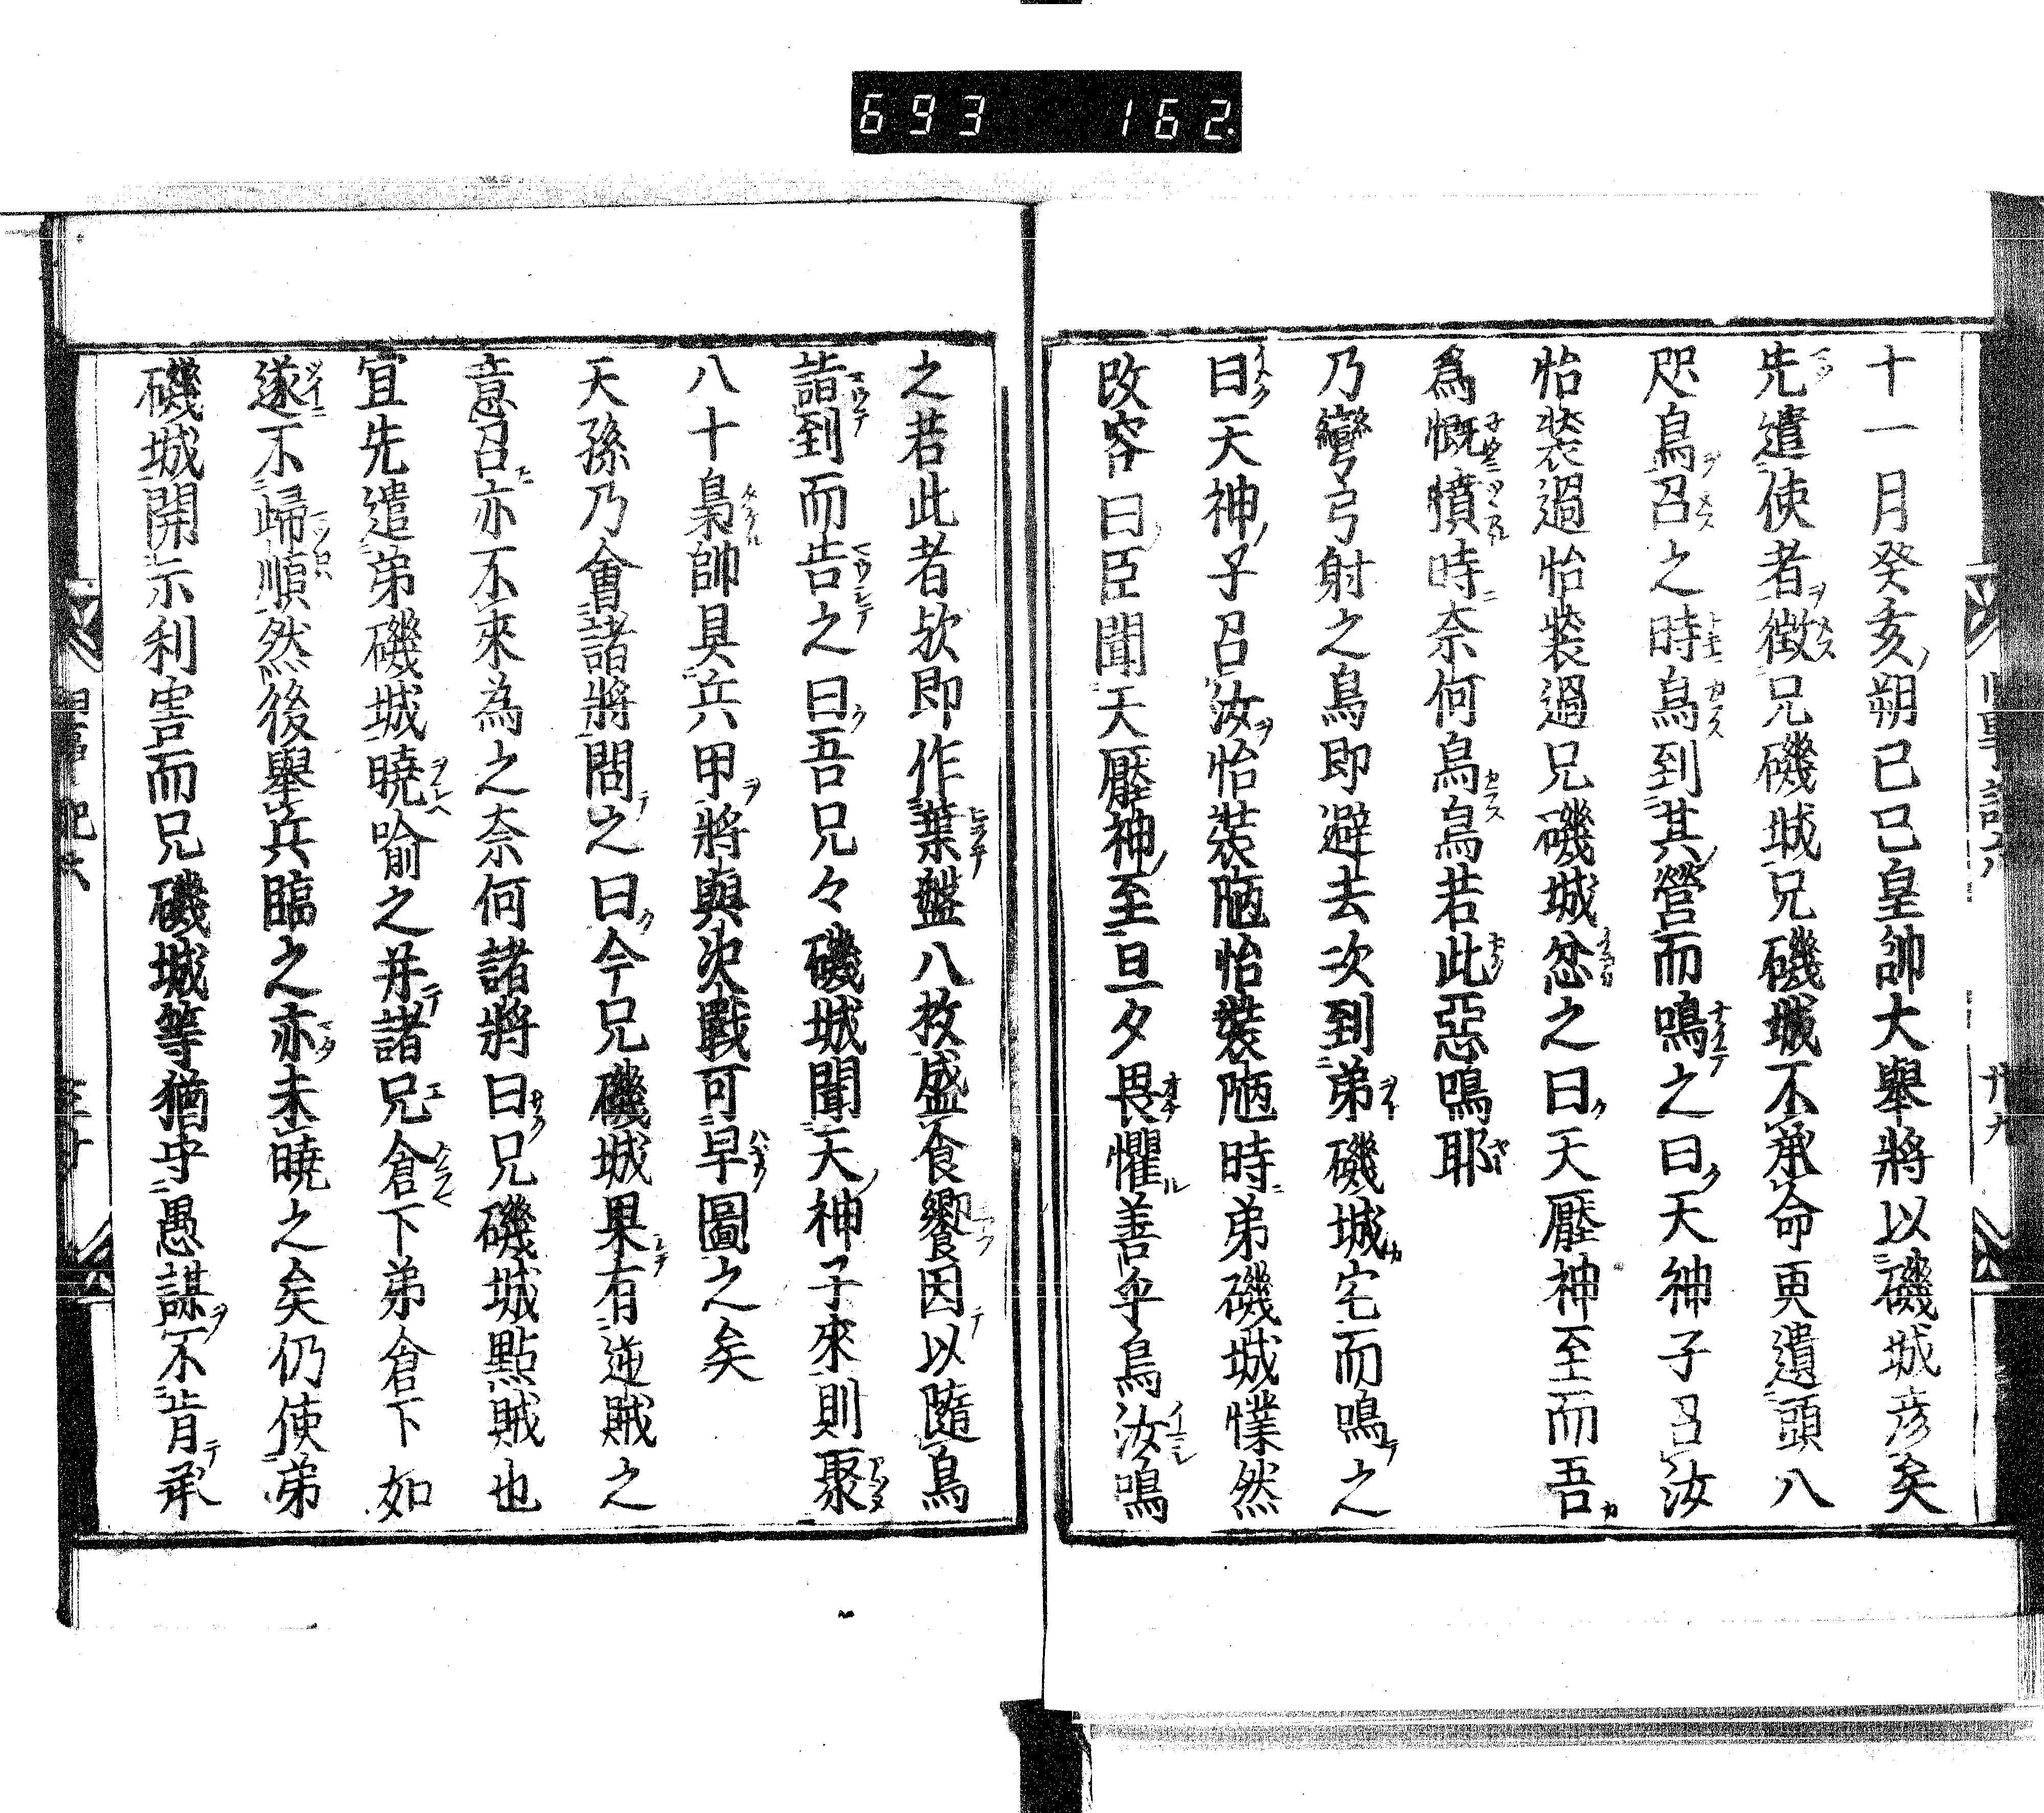 693 162.
十一月癸亥朔已巳皇帥大舉將以磯城彦矣
先遣使者徴兄磯城兄磯城不承命更遺頭八
咫烏召之時烏到其營而鳴之曰天神子召汝
怡裝過怡裝過兄磯城忿之曰天壓神至而吾
爲慨憤時奈何烏烏若此惡鳴耶
乃彎弓射之烏即避去次到弟磯城宅而鳴之
曰天神子召汝怡裝陋怡裝陋時弟磯城慄然
改容曰臣聞天壓神至旦夕畏懼善乎烏汝鳴
之若此者欤即作葉盤八枚盛食饗因以隨烏
詣到而告之曰吾兄々磯城聞天神子來則聚
八十梟帥具兵甲將與决戰可早圖之矣
天孫乃會諸將問之曰今兄磯城果有逆賊之
意召亦不來為之奈何諸將曰兄磯城點賊也
宜先遣弟磯城曉喻之并諸兄倉下弟倉下如
遂不歸順然後舉兵臨之亦未曉之矣仍使弟
磯城開示利害而兄磯城等猶守愚謀不肯承